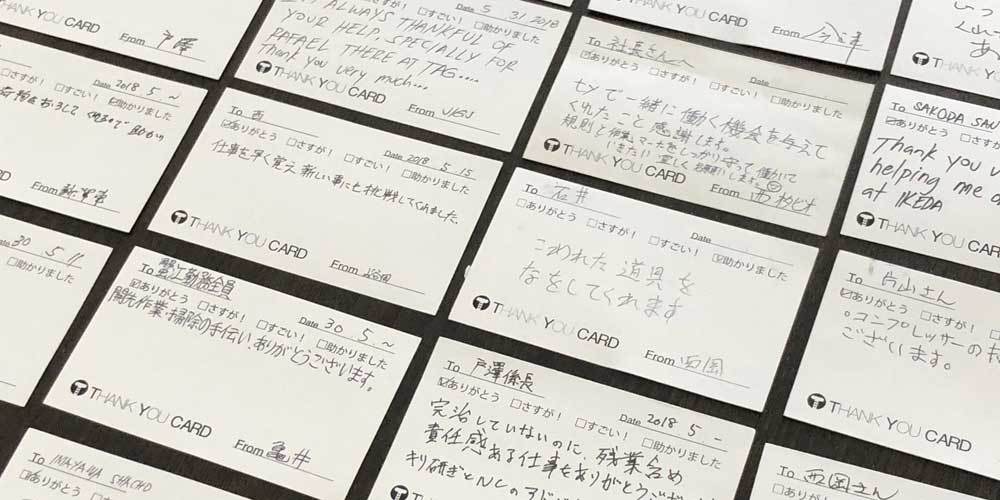 From 戸澤
Date 5 31 2018
ALWAYS THANKFUL OF
YOUR HELP. SPECIALLY FOR
RAFAEL THERE AT TAG....
Thank you very much...
THANK YOU CARD
From
□さすが! □すごい! □助かりました
THANK YOU CARD
From 今津
THANK YOU CARD
□さすが! □すごい! ☑助かりました
Date 2018 5 ~
From
To 西
☑ありがとう □さすが! □すごい! □助かりました
Date 2018 5 15
仕事を早く覚え 新しい事にも挑戦してくれました。
THANK YOU CARD
From
To 社長さんへ
☑ありがとう □さすが! □すごい! □助かりました
Date
七夕で一緒に働く機会を与えて
くれたこと 感謝します。
規則と マナーをしっかり守って 働かせて
いきたい 宜しくお願いします
THANK YOU CARD
From 西
To SAKODA
☑ありがとう
Thank you
helping me
at IKEDA
THANK YOU
30 5 11
□助かりました
To 堀江勤務全員
☑ありがとう □さすが! □すごい! □助かりました
Date 30. 5 ~
開先作業、掃除の手伝い、ありがとうございます。
THANK YOU CARD
From 亀井
To 石井
□ありがとう □さすが! □すごい! ☑助かりました
Date
こわれた 道具を
なをしてくれます
THANK YOU CARD
From 西岡
To 片山さん
☑ありがとう □さすが!
。コンプレッサーの
ございます。
THANK YOU
To INAYAWA SHACHO
□ありがとう □さすが!
To 戸澤係長
☑ありがとう □さすが! □すごい! □助かりました
Date 2018 5 -
完治していないのに、残業含め
責任感ある仕事をありがとうござい
キリ研ぎとNCのアド
To 西岡さん